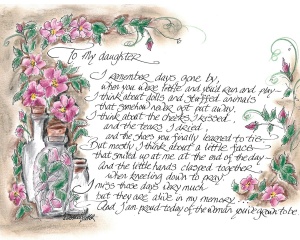 To My daughter
I remember days gone by,
when you were little and you'd run and play
I think about dolls and stuffed animals
that somehow never got put away.
I think about the cheeks I kissed
and the tears I dried,
and the shoes you finally learned to tie
But mostly I think about a little face
that smiled up at me at the end of the day
And the little hands clasped together
when kneeling down to pray
I miss those days very much
but they are alive in my memory
And I am proud today of the woman you've grown to be.